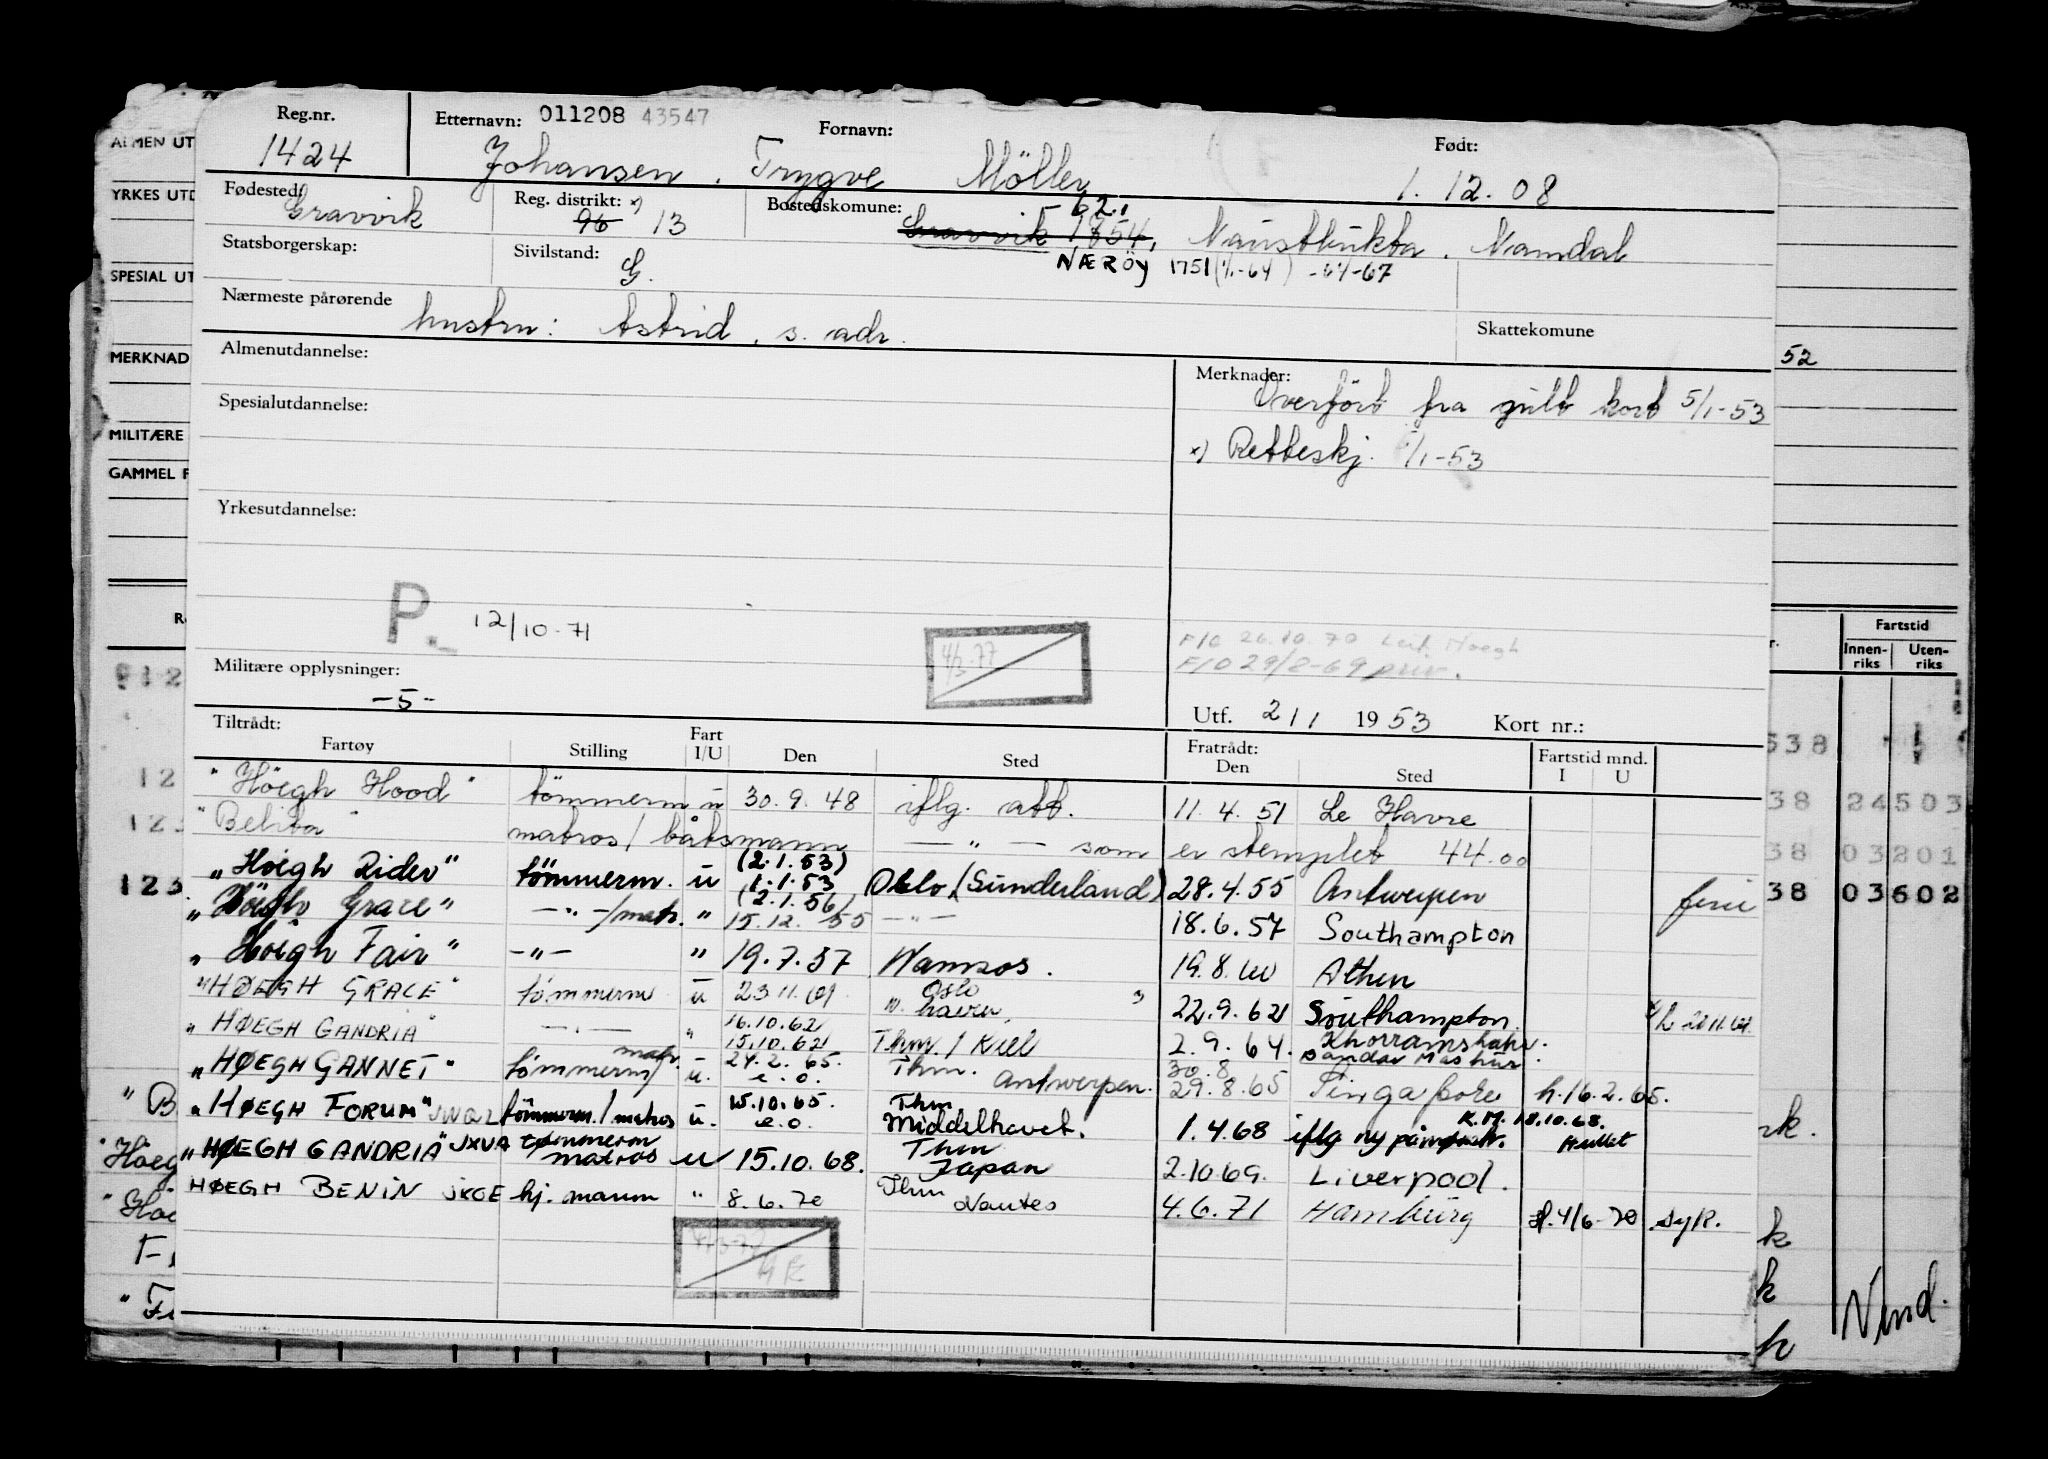 Reg.nr. Etternavn: 011208 43547 Fornavn: Født:
1424 Johansen, Trygve Möller 1.12.08
Fødested: Gravvik Reg. distrikt: x) 96 13 Bostedskomune: Gravvik 1854, 62.1 Naustbukta, Namdal
Statsborgerskap: Sivilstand: G. NÆRÖY 1751 (1/1-64) -64-67
Nærmeste pårørende hustru: Astrid, s. adr. Skattekomune
Almenutdannelse: Merknader:
Overført fra gult kort 5/1-53
Spesialutdannelse:
x) Retteskj. /1-53
Yrkesutdannelse:
P. 12/10-71
4/3-77
F/O 26.10.70 Leif Hoegh
F/O 29/8-69 priv.
Militære opplysninger:
-5-
Utf. 2/1 1953 Kort nr.:
Tiltrådt: Fratrådt: Fartstid mnd.
Fartøy Stilling Fart I/U Den Sted Den Sted I U
"Höegh Hood" tömmerm u 30.9.48 iflg. att. 11.4.51 Le Havre
"Belita" matros/båtsmann —"— som er stemplet 44.00
"Höegh Rider" tömmerm. u (2.1.53) 1.1.53 Oslo (Sunderland) 28.4.55 Antwerpen
"Höegh Grace" —"—/matr. " (2.1.56) 15.12.55 —"— 18.6.57 Southampton ferie
"Höegh Fair" —"— " 19.7.57 Namsos. 19.8.60 Athen
"HØEGH GRACE" tømmerm u 23.11.61 Oslo 22.9.62 Southampton.
"HØEGH GANDRIA" —"— " 16.10.62 15.10.62 Thm./Kiel 2.9.64. Khorramshahr. Bandar Mashur
"HØEGH GANNET" tømmerm/matr. u. 24.2.65. e.o. Thm. Antwerpen. 30.8 29.8.65 Singapore h.16.2.65.
"HØEGH FORUM" JWQL tömmerm./matros u. 15.10.65. e.o. Thm Middelhavet. 1.4.68 iflg ny påmønstr. K.M. 18.10.68.
"HØEGH GANDRIA" JXVA tømmerm matros u 15.10.68. Thm Japan 2.10.69. Liverpool.
HØEGH BENIN JKOE hj. mann " 8.6.70 Thm Nantes 4.6.71 Hamburg 4/6-70 syk.
4/3-77 HK
ALMEN UT
YRKES UTD
SPESIAL UT
MERKNAD
MILITÆRE
GAMMEL F
52
Fartstid
Innenriks Utenriks
538
38 24503
38 03201
38 03602
912
12
123
123
"B
"Höeg
k.
k
k
h
Vend.